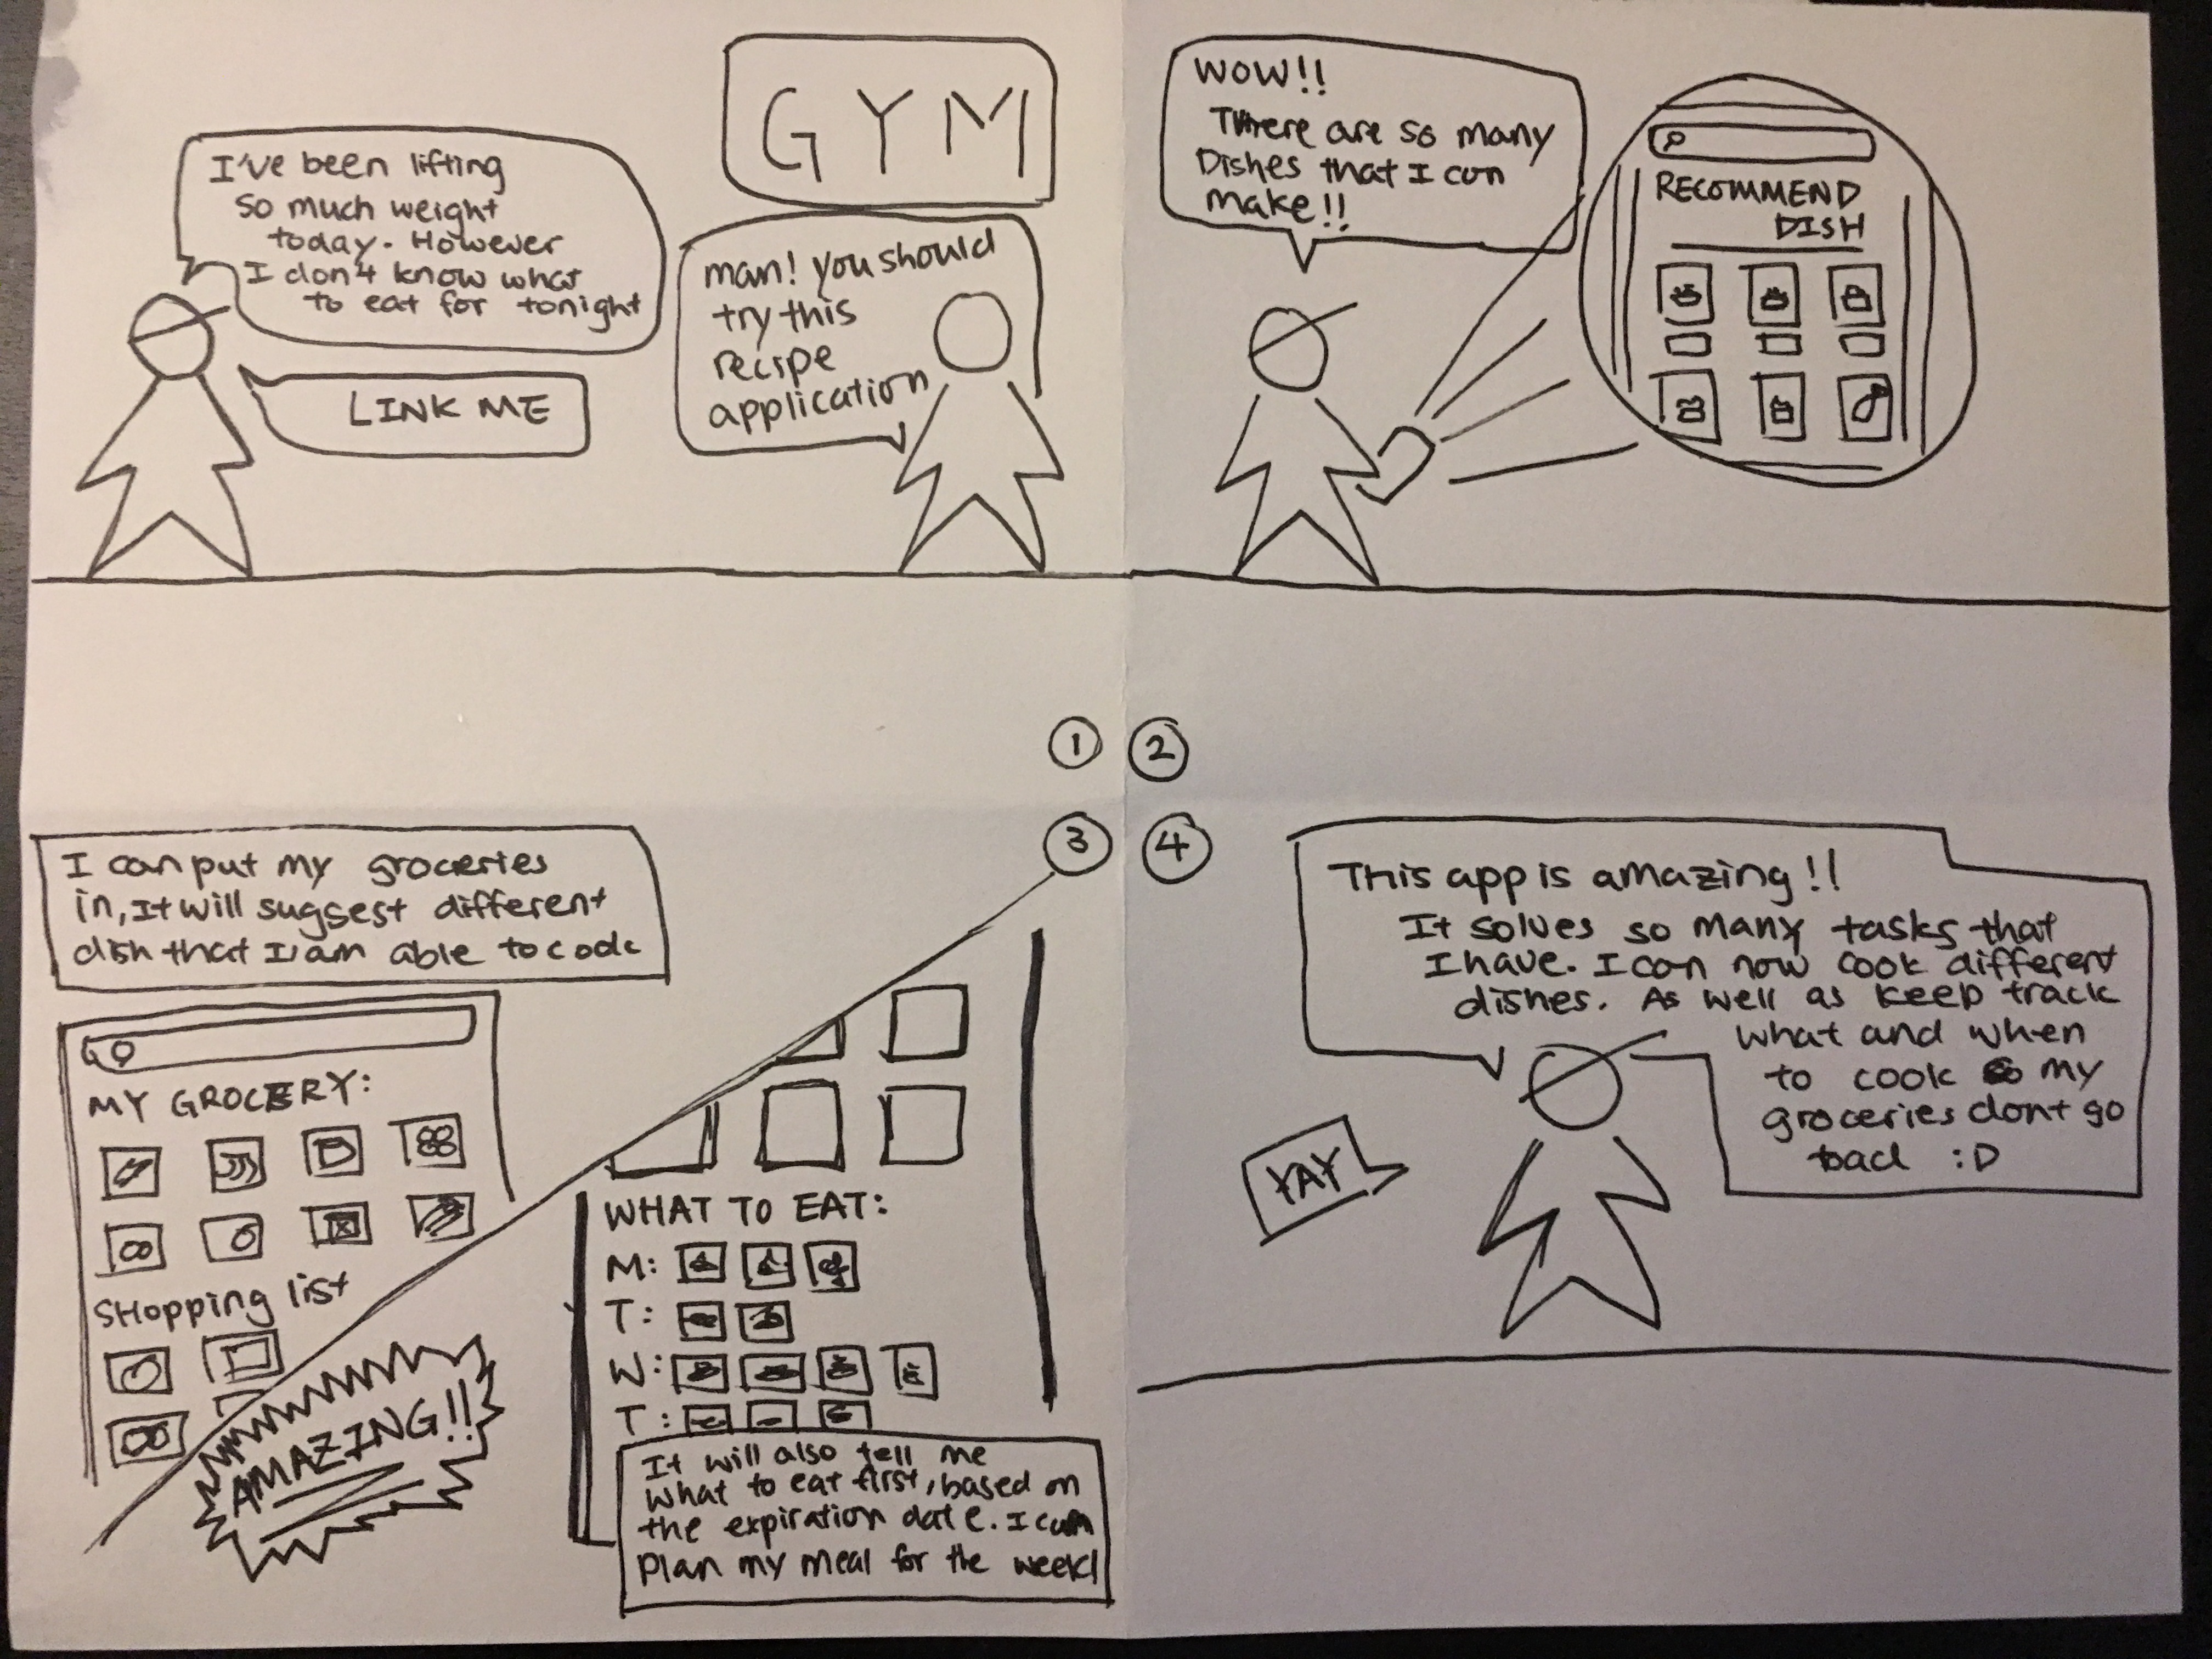 GYM
I've been lifting
so much weight
today. However
I don't know what
to eat for tonight
man! you should
try this
recipe
application
LINK ME
WOW!!
There are so many
Dishes that I can
make!!
RECOMMEND
DISH
1
2
3
4
I can put my groceries
in, It will suggest different
dish that I am able to cook
MY GROCERY:
SHopping list
AMAZING!!
WHAT TO EAT:
M:
T:
W:
T:
It will also tell me
what to eat first, based on
the expiration date. I can
plan my meal for the week!
This app is amazing!!
It solves so many tasks that
I have. I can now cook different
dishes. As well as keep track
what and when
to cook so my
groceries dont go
bad :D
YAY